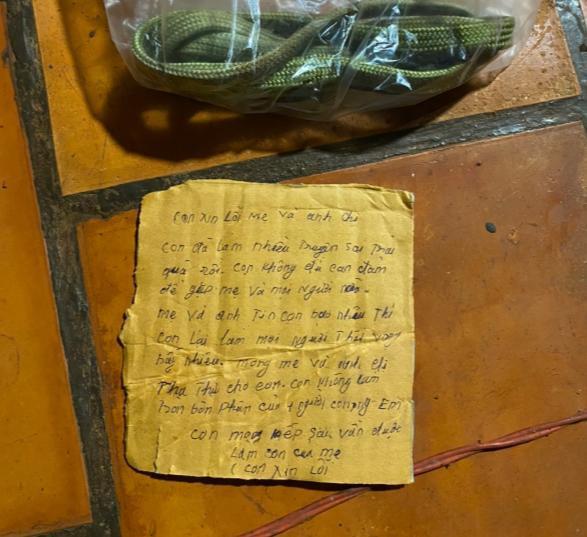 Con xin Lỗi mẹ và anh chị
con đã Làm nhiều chuyện sai trái
quá rồi. con không đủ can đảm
để gặp mẹ và mọi người nữa.
mẹ và anh Tin con bao nhiêu Thì
con Lại làm mọi người Thất vọng
bấy nhiêu. mong mẹ và anh chị
Tha Thứ cho con. con không làm
tròn bổn phận của 1 người con, Em
con mong kiếp sau vẫn được
Làm con của mẹ
(con xin Lỗi